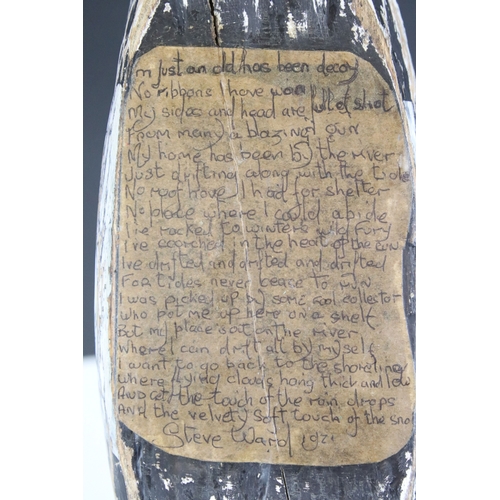 I'm just an old has been decoy
No ribbons I have won
My sides and head are full of shot
From many a blazing gun
My home has been by the river
Just drifting along with the tide
No roof have I had for shelter
No place where I could abide
I've rocked to winters wild fury
I've scorched in the heat of the sun
I've drifted and drifted and drifted
For tides never cease to run
I was picked up by some fool collector
who put me up here on a shelf
But my place is out on the river
where I can drift all by myself
I want to go back to the shoreline
Where flying clouds hang thick and low
And get the touch of the rain drops
And the velvety soft touch of the snow
Steve Ward 1921